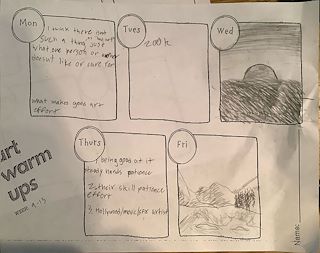 Mon
I think there isnt
such a thing, just
what one person or
doesnt like or care for
what makes good art
effort
Tues
Wed
art
warm
ups
week
Thurs
1. being good at it
steady hands patience
2. their skill patience
effort
3. Hollywood/movie/sfx artist
Fri
Name: